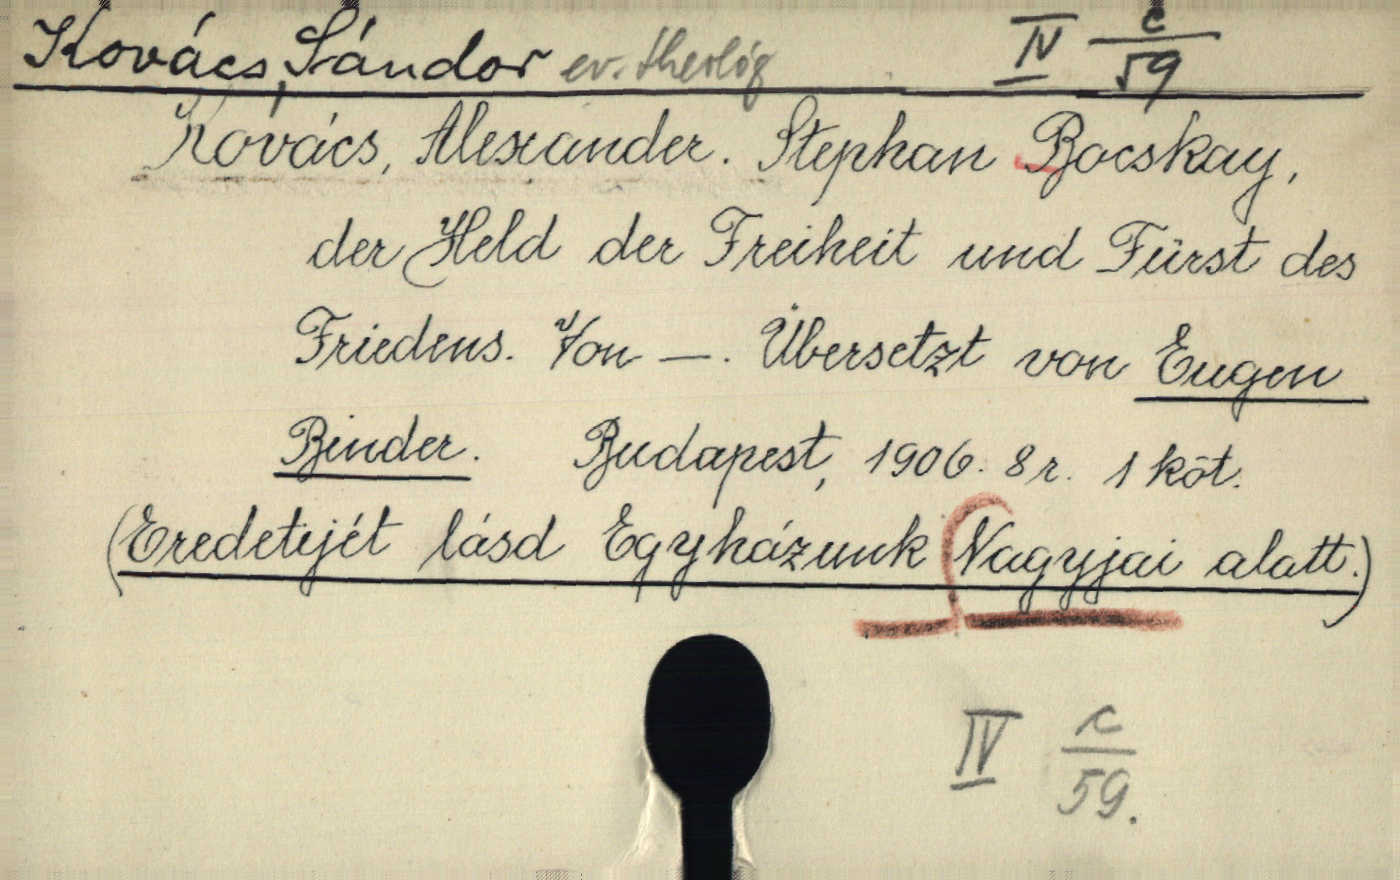 Kovács, Sándor ev. theológ IV c/59
Kovács, Alexander. Stephan Bocskay,
der Held der Freiheit und Fürst des
Friedens. Von —. Übersetzt von Eugen
Binder. Budapest, 1906. 8 r. 1 köt.
(Eredetijét lásd Egyházunk Nagyjai alatt.)
IV c/59.